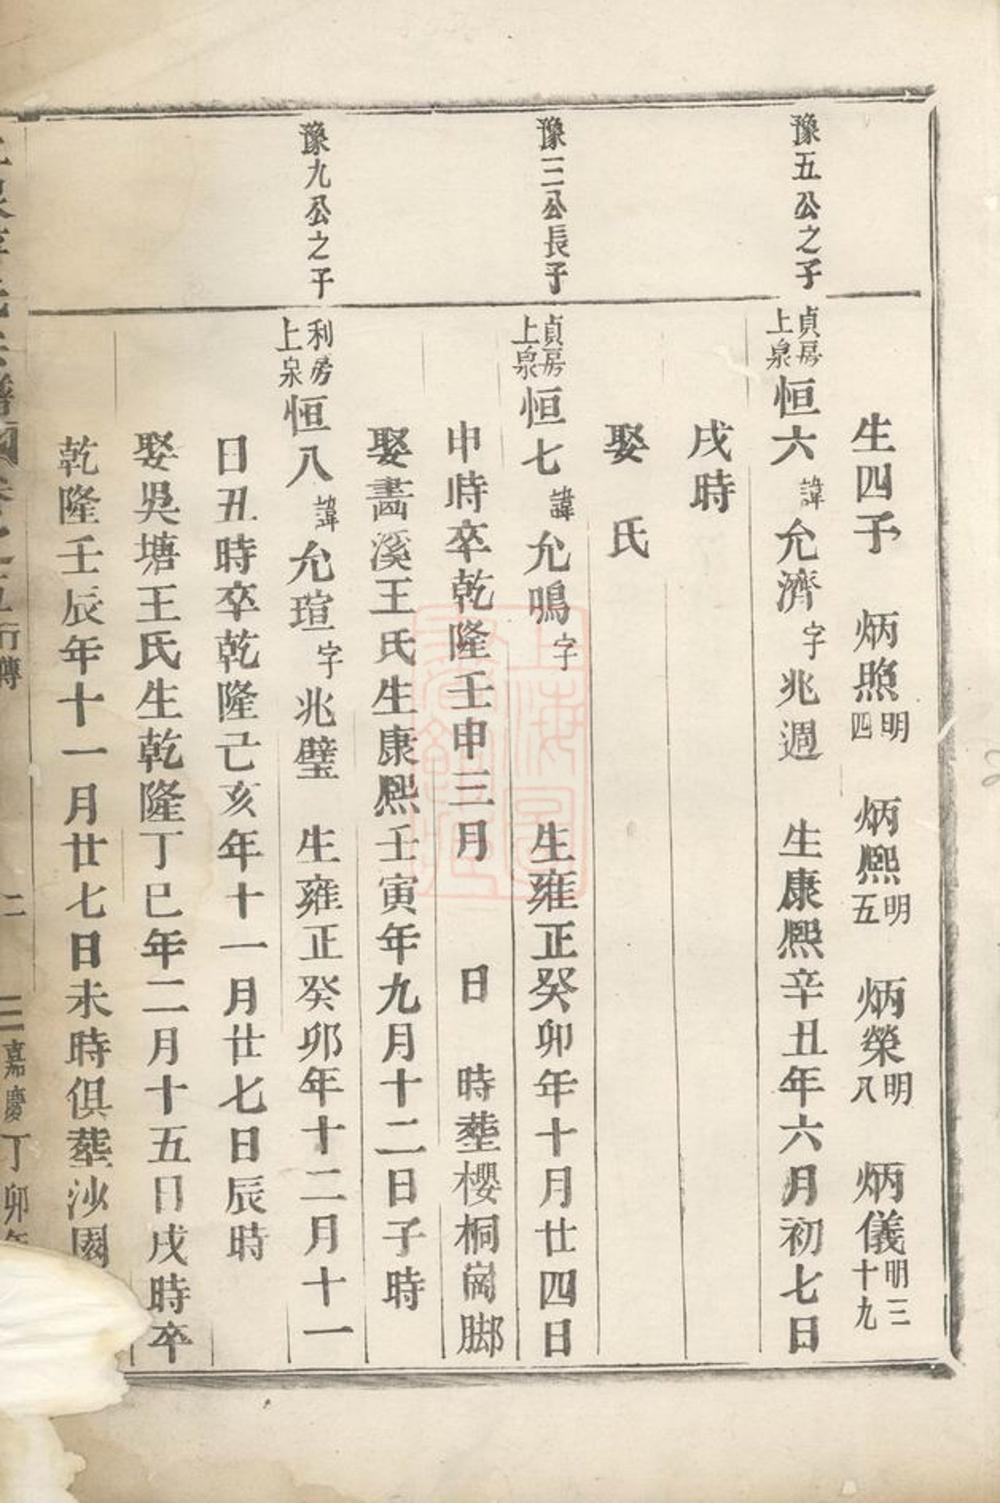 生四子 炳照明四 炳熙明五 炳榮明八 炳儀明三十九
豫五公之子
貞房上泉恒六諱允濟字兆週 生康熙辛丑年六月初七日
戌時
娶 氏
豫三公長子
貞房上泉恒七諱允鳴字 生雍正癸卯年十月廿四日
申時卒乾隆壬申三月 日 時塟櫻桐崗脚
娶畵溪王氏生康熙壬寅年九月十二日子時
豫九公之子
利房上泉恒八諱允瑄字兆璧 生雍正癸卯年十二月十一
日丑時卒乾隆己亥年十一月廿七日辰時
娶吳塘王氏生乾隆丁巳年二月十五日戌時卒
乾隆壬辰年十一月廿七日未時俱塟沙園
卷之五行傳 二 三 嘉慶丁卯年
上海圖書館藏